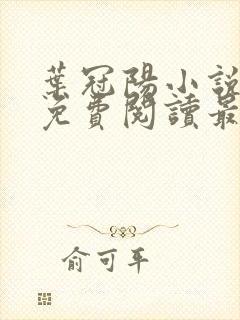 葉冠陽小說
免費閱讀最
俞可平